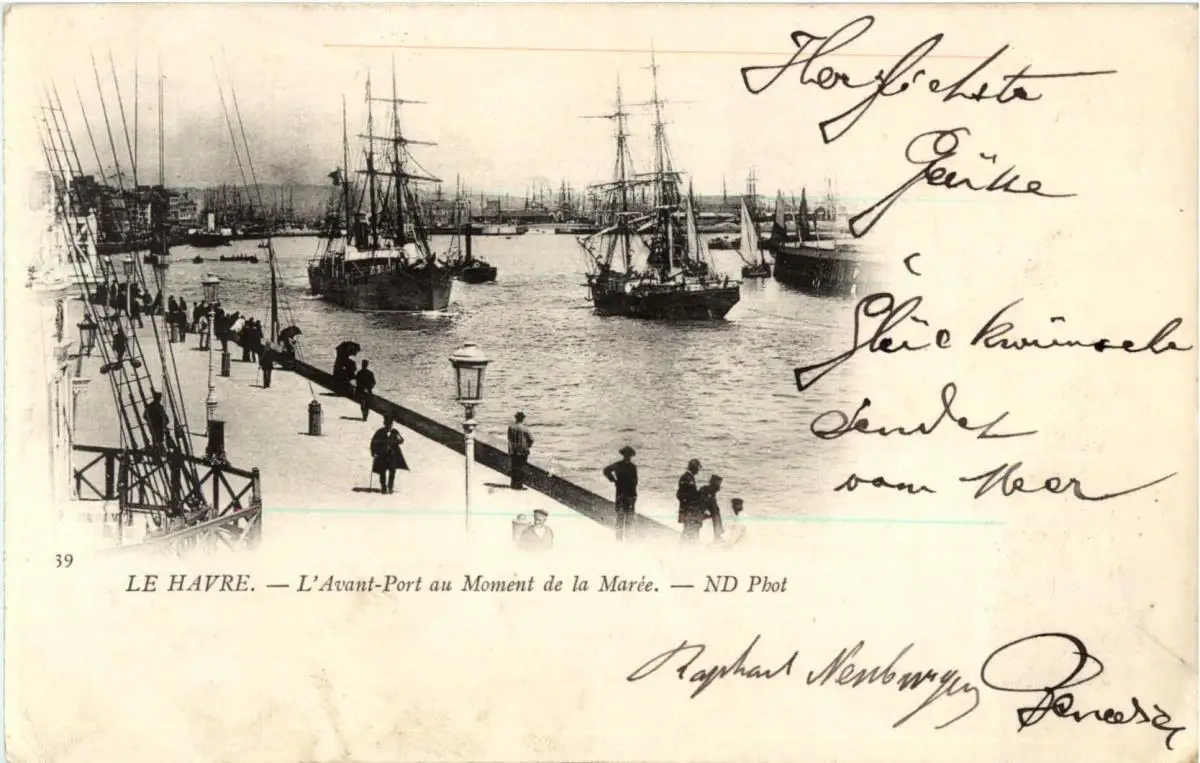 Herzlichste
Grüsse
Glückwünsche
sendet
vom Meer
39
LE HAVRE. — L'Avant-Port au Moment de la Marée. — ND Phot
Raphael Neuburger